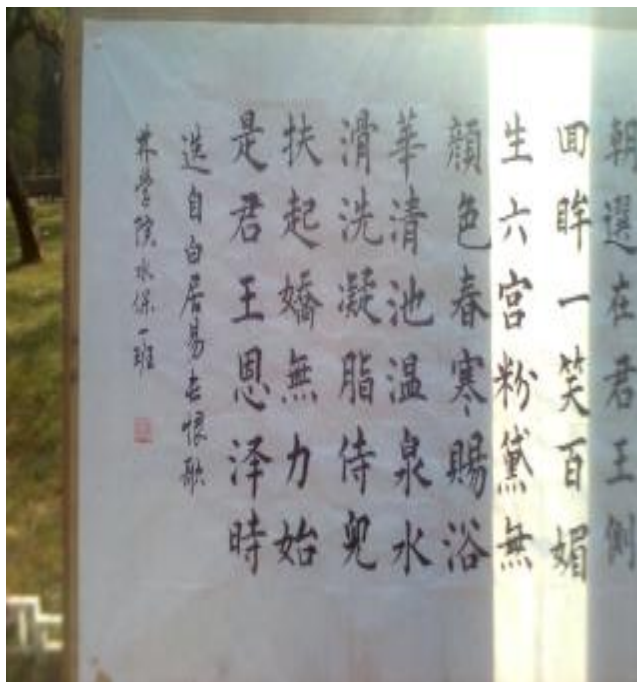 朝選在君王側
回眸一笑百媚
生六宮粉黛無
顔色春寒賜浴
華清池温泉水
滑洗凝脂侍兒
扶起嬌無力始
是君王恩泽時
选自白居易长恨歌
林学院水保一班